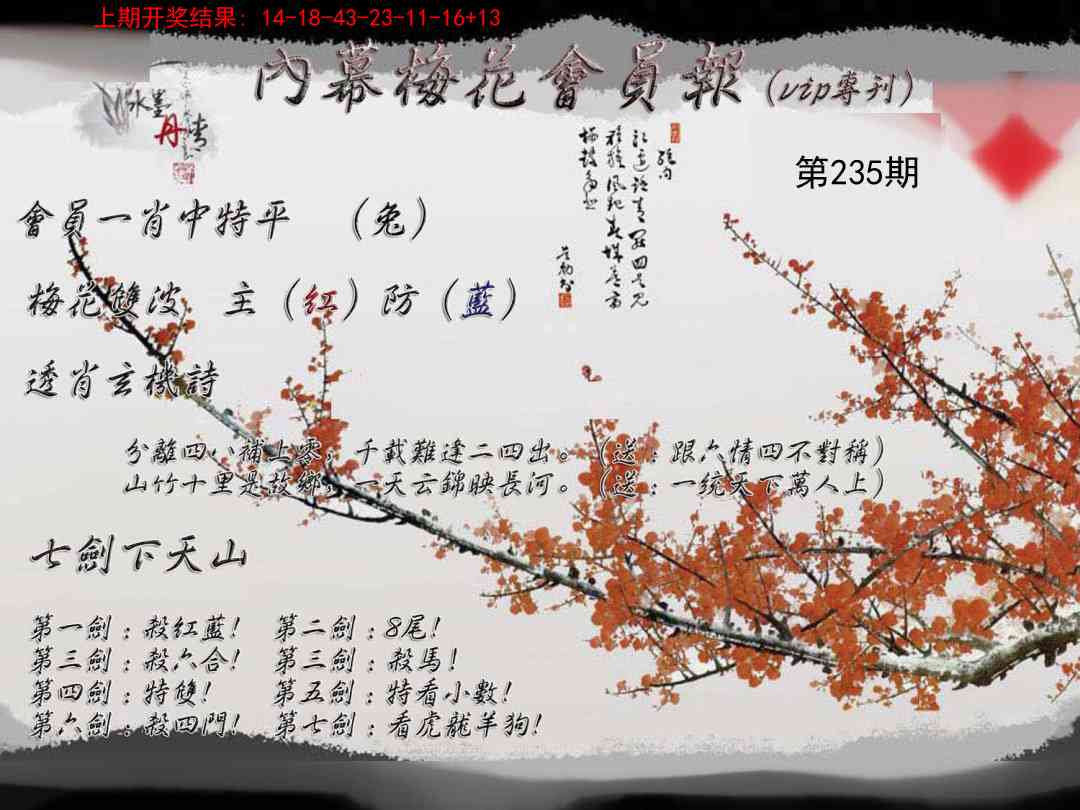 上期开奖结果: 14-18-43-23-11-16+13
內幕梅花會員報(vip專刊)
水墨
丹青
第235期
會員一肖中特平 (兔)
梅花雙波 主(紅)防(藍)
透肖玄機詩
分離四八補上零,千載難逢二四出。(送:跟六情四不對稱)
山竹十里是故鄉,一天云錦映長河。(送:一统天下萬人上)
七劍下天山
第一劍:殺紅藍! 第二劍:8尾!
第三劍:殺六合! 第三劍:殺馬!
第四劍:特雙! 第五劍:特看小數!
第六劍:殺四門! 第七劍:看虎龍羊狗!